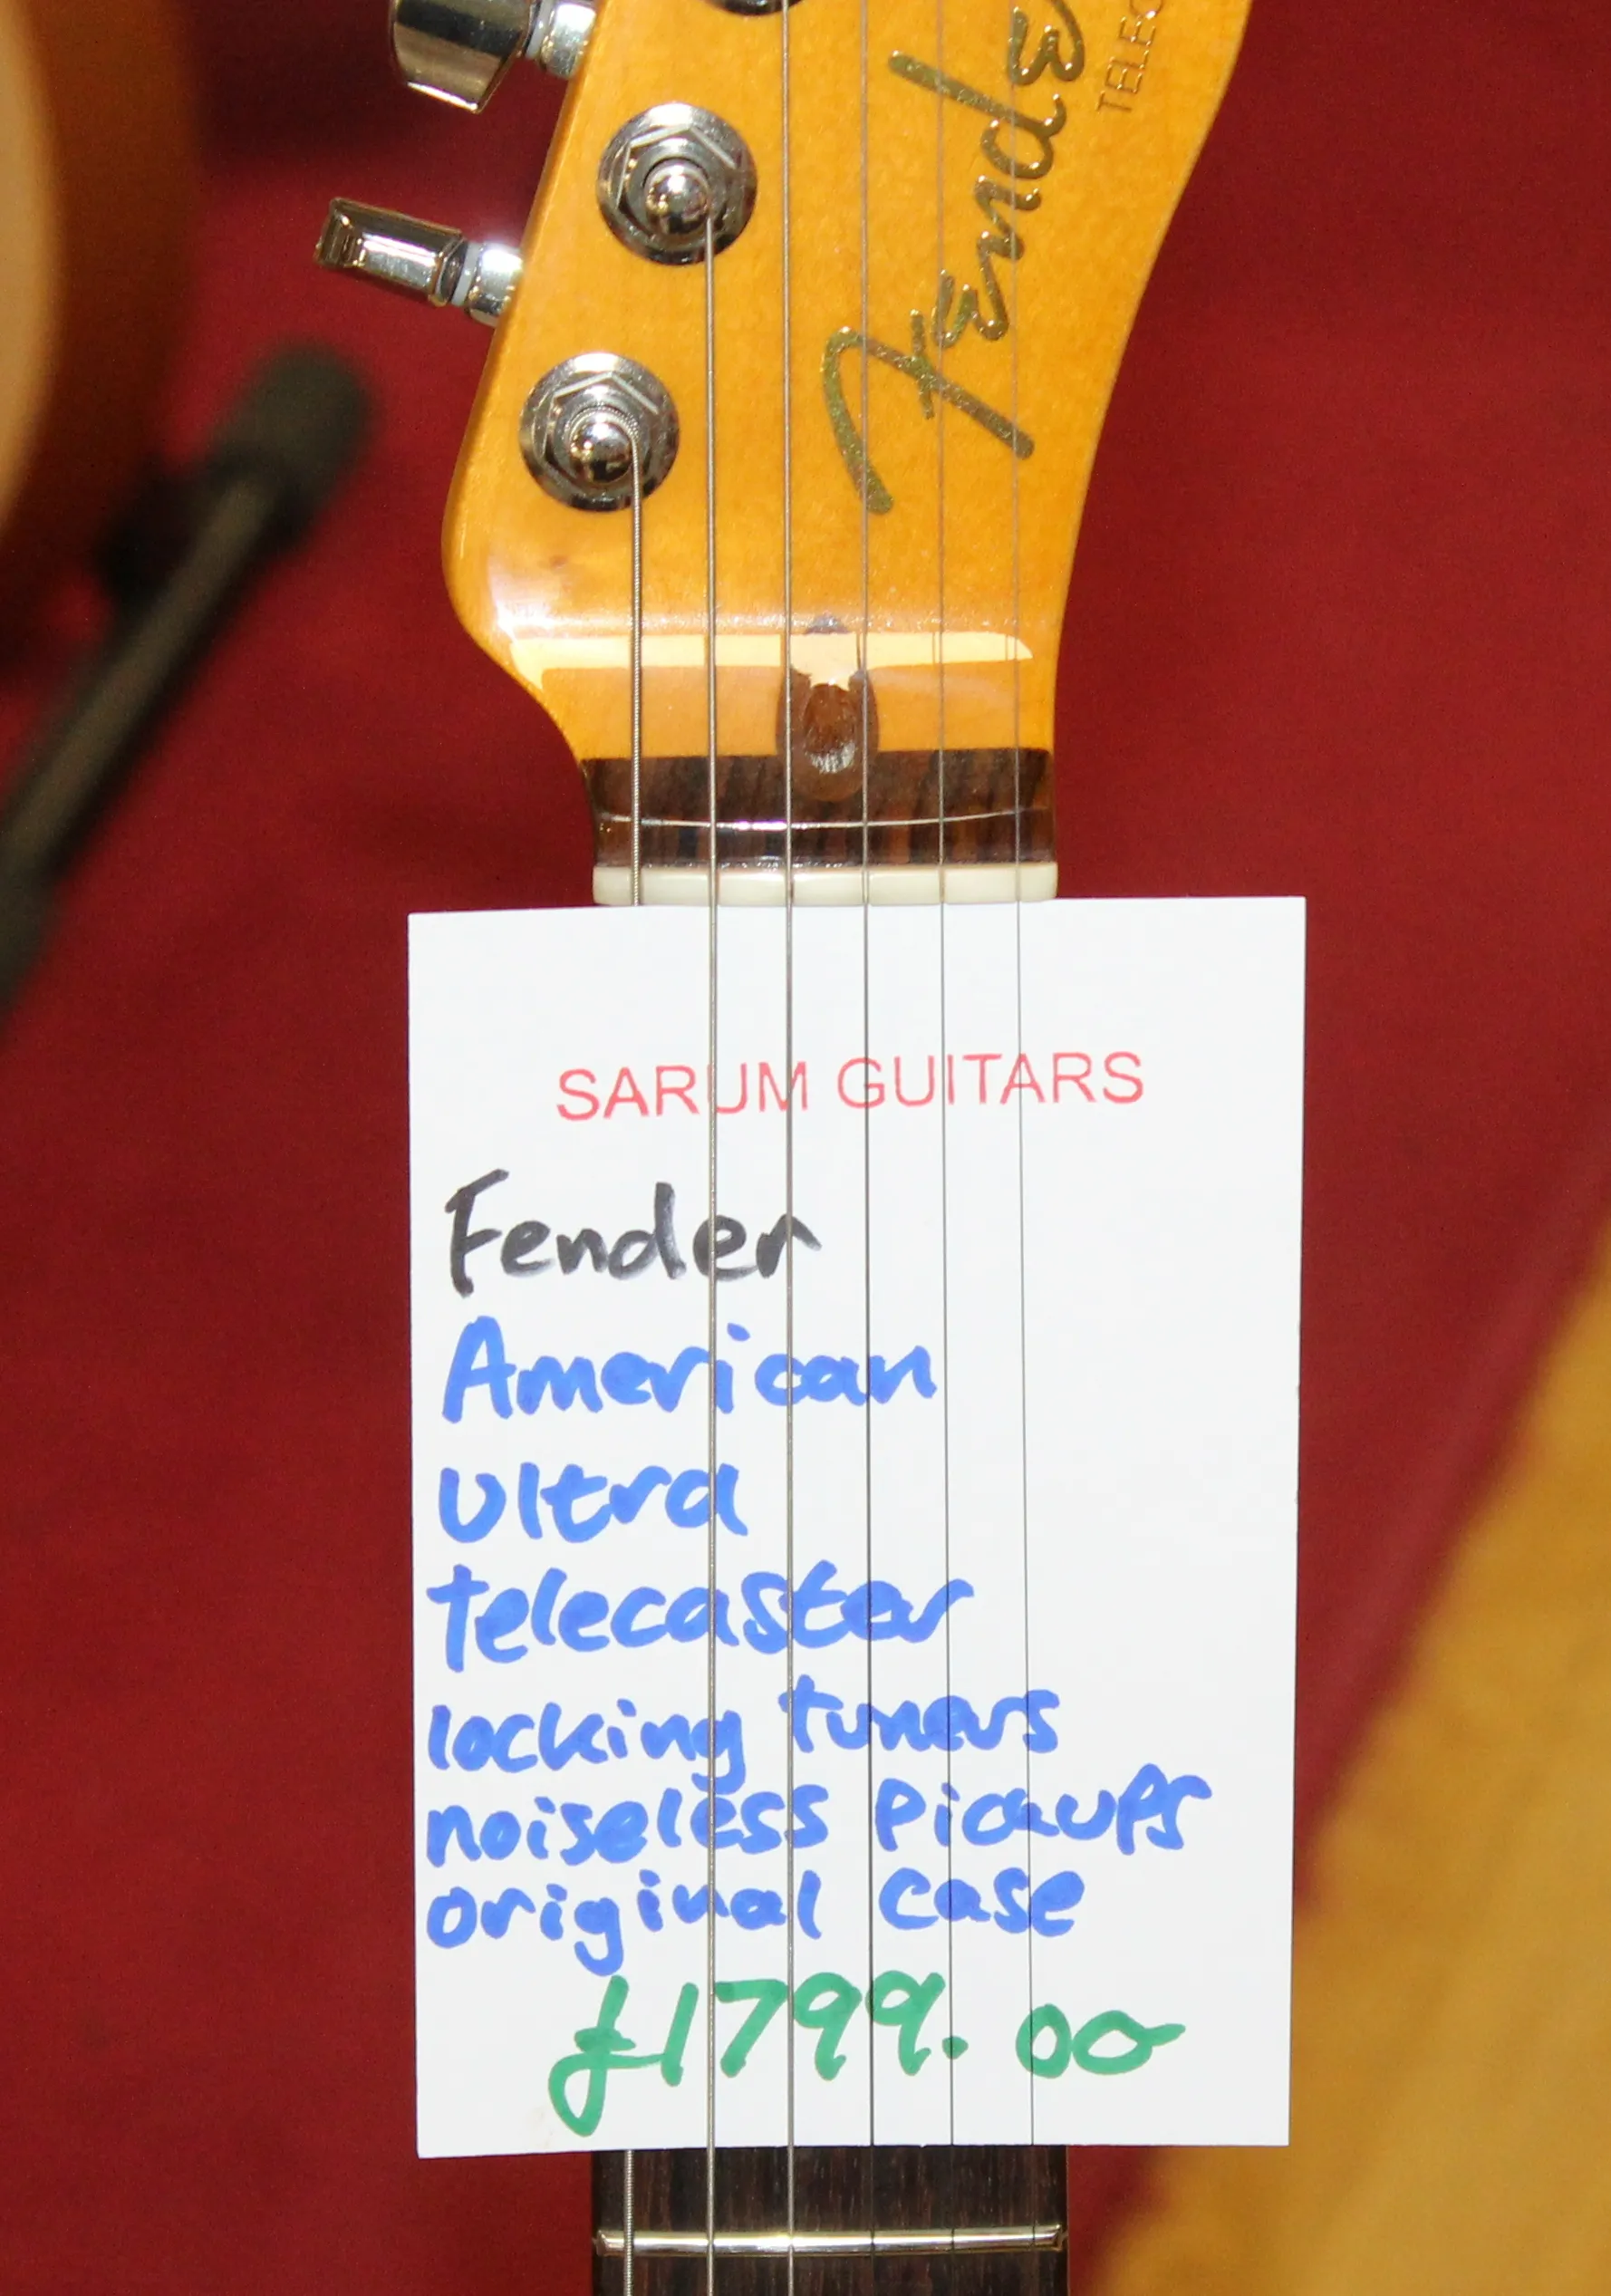 Fende
TELEC
SARUM GUITARS
Fender
American
Ultra
telecaster
locking tuners
noiseless pickups
original case
£1799.00